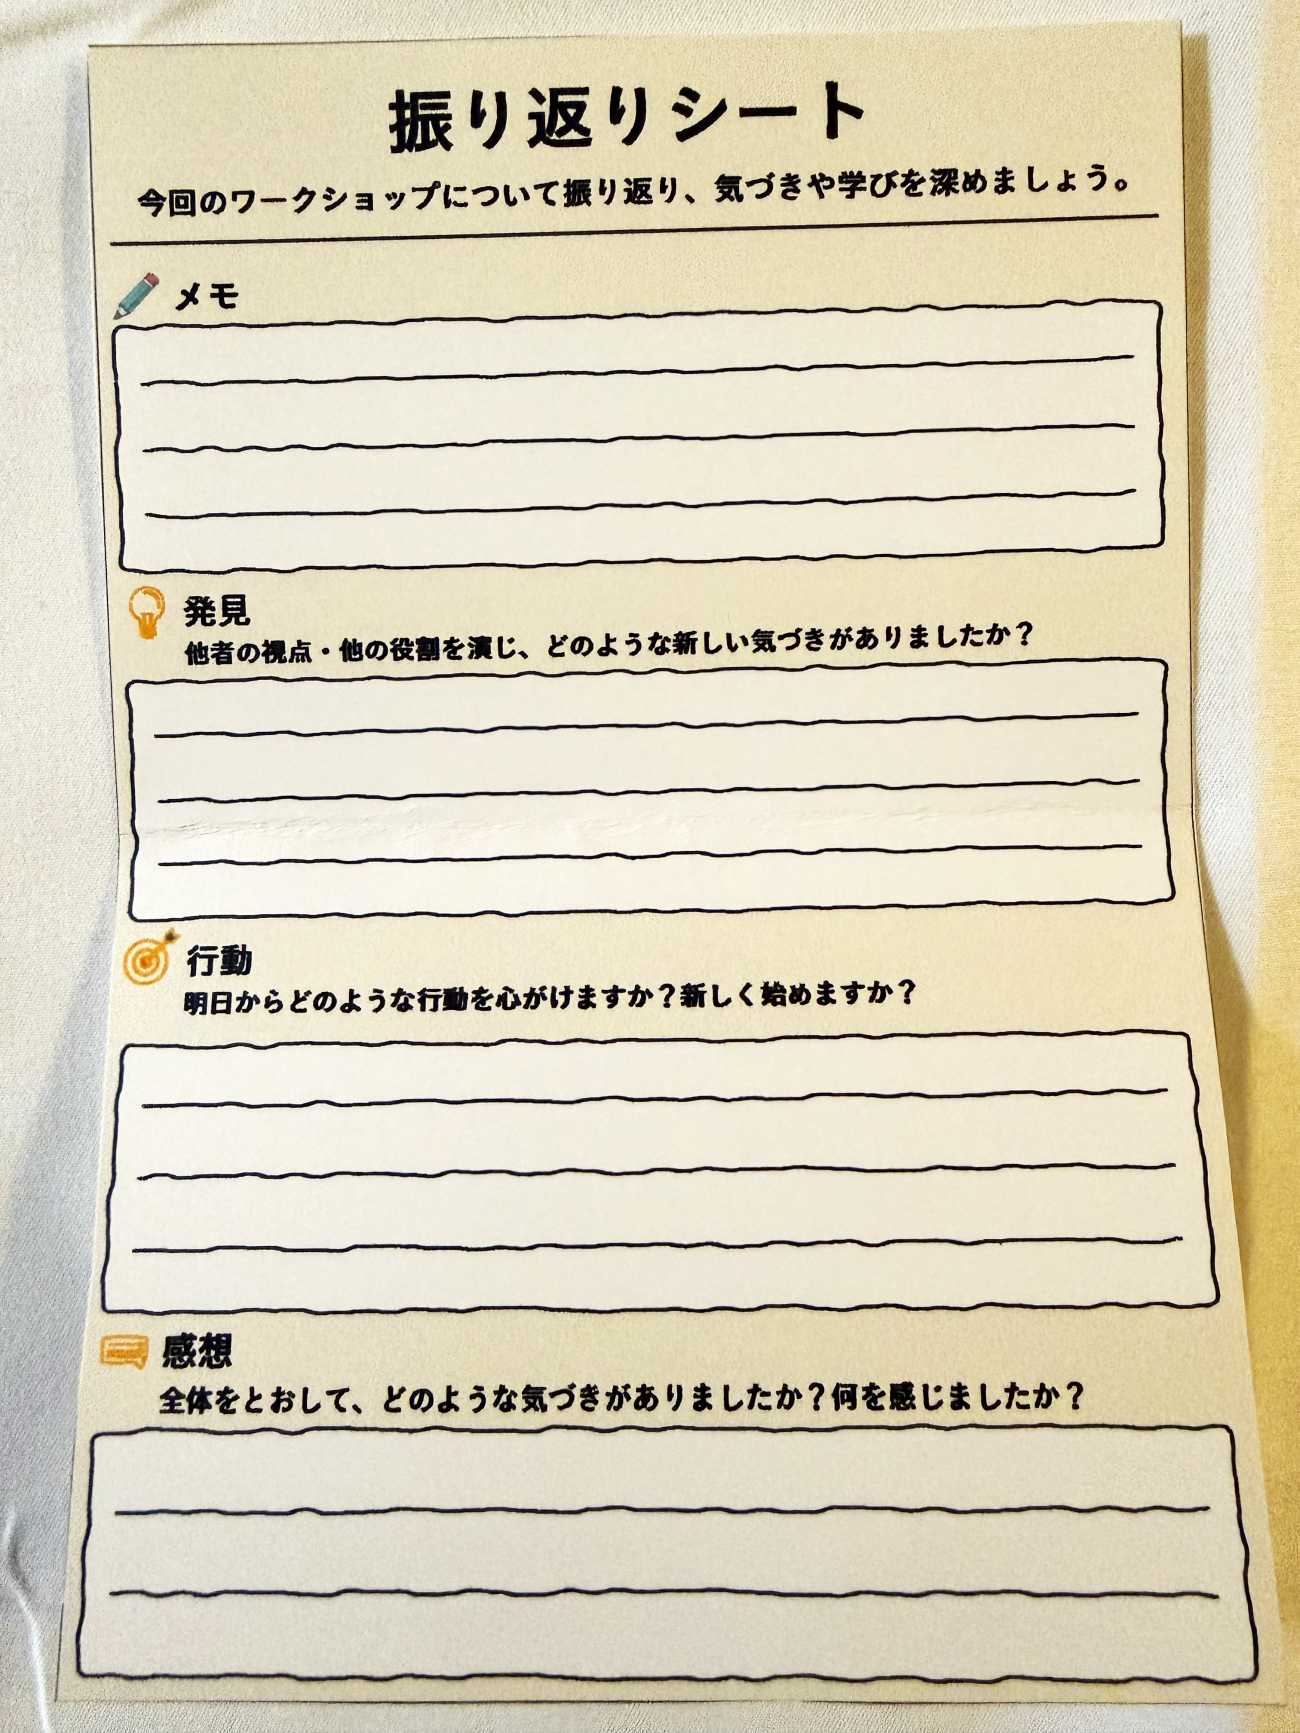 振り返りシート
今回のワークショップについて振り返り、気づきや学びを深めましょう。
メモ
発見
他者の視点・他の役割を演じ、どのような新しい気づきがありましたか？
行動
明日からどのような行動を心がけますか？新しく始めますか？
感想
全体をとおして、どのような気づきがありましたか？何を感じましたか？